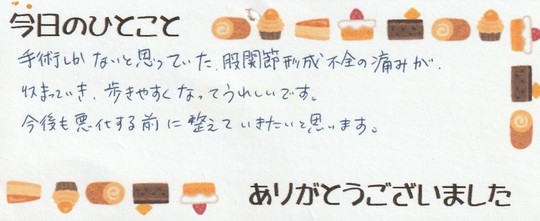 今日のひとこと
手術しかないと思っていた、股関節形成不全の痛みが、
収まっていき、歩きやすくなってうれしいです。
今後も悪化する前に整えていきたいと思います。
ありがとうございました